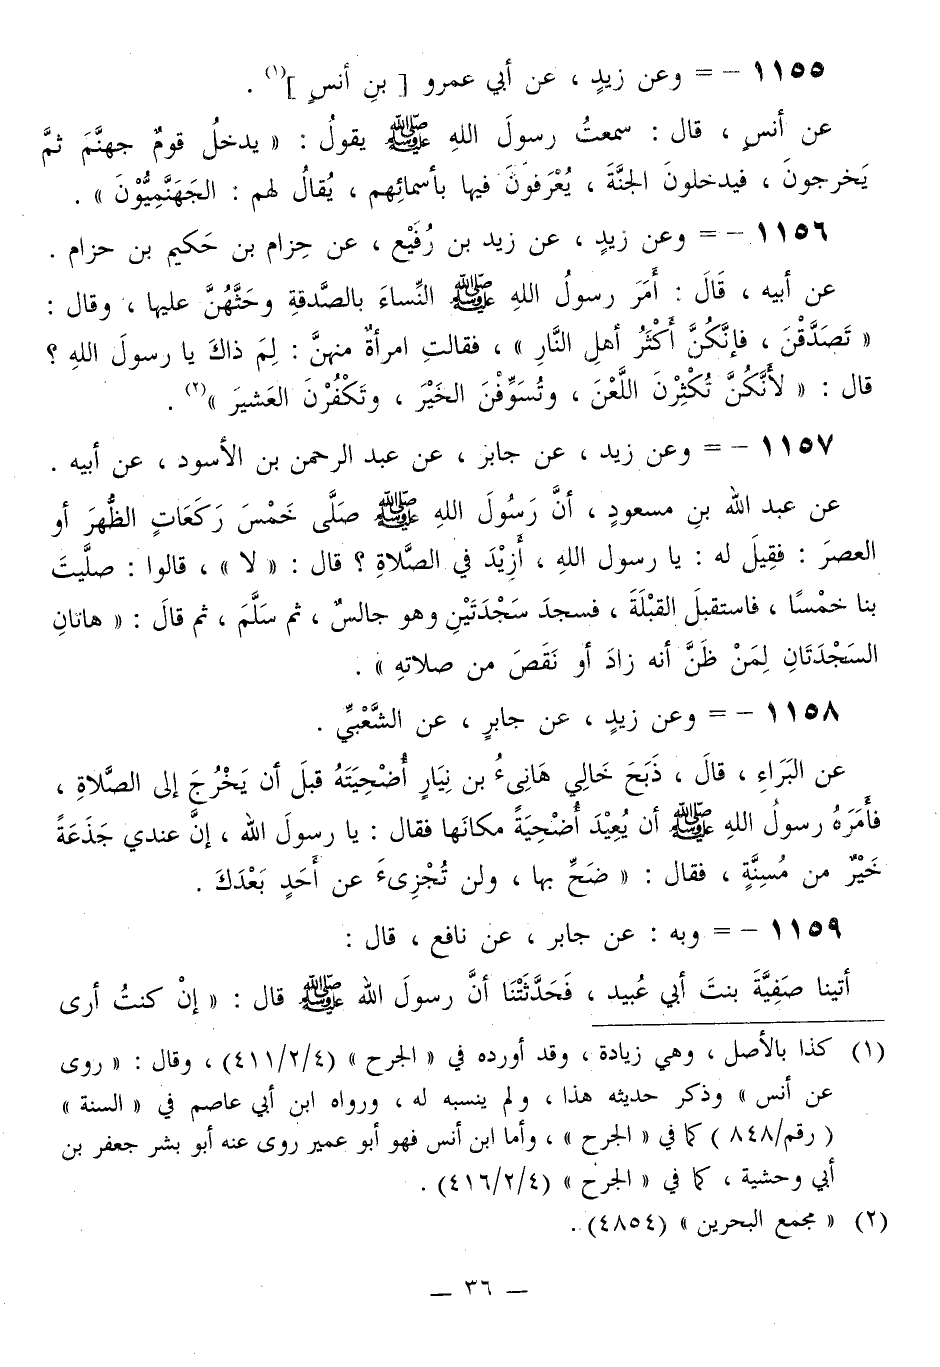 ١١٥٥ - = وعن زيدٍ ، عن أبي عمرو [ بنِ أنسٍ ](١) .
عن أنسٍ ، قال : سمعتُ رسولَ اللهِ ﷺ يقولُ : « يدخلُ قومٌ جهنَّمَ ثمَّ
يَخرجونَ ، فيدخلونَ الجنَّةَ ، يُعْرَفونَ فيها بأسمائِهم ، يُقالُ لهم : الجَهَنَّمِيُّوْنَ » .
١١٥٦ - = وعن زيدٍ ، عن زيد بن رُفَيْع ، عن حِزام بن حَكيم بن حزام .
عن أبيه ، قَالَ : أَمَرَ رسولُ اللهِ ﷺ النِّساءَ بالصَّدقةِ وحَثَّهُنَّ عليها ، وقال :
« تَصَدَّقْنَ ، فإنَّكُنَّ أَكْثَرُ أهلِ النَّارِ » ، فقالتِ امرأةٌ منهنَّ : لِمَ ذاكَ يا رسولَ اللهِ ؟
قال : « لأَنَّكُنَّ تُكْثِرْنَ اللَّعْنَ ، وتُسَوِّفْنَ الخَيْرَ ، وتَكْفُرْنَ العَشيرَ »(٢) .
١١٥٧ - = وعن زيد ، عن جابر ، عن عبد الرحمن بن الأسود ، عن أبيه .
عن عبد الله بنِ مسعودٍ ، أنَّ رَسُولَ اللهِ ﷺ صَلَّى خَمْسَ رَكَعَاتٍ الظُّهرَ أو
العصرَ : فقِيلَ له : يا رسول اللهِ ، أَزِيْدَ في الصَّلاةِ ؟ قال : « لا » ، قالوا : صلَّيتَ
بنا خمْسًا ، فاستقبلَ القبْلَةَ ، فسجدَ سَجْدَتَيْنِ وهو جالسٌ ، ثم سَلَّمَ ، ثم قالَ : « هاتانِ
السَجْدَتَانِ لِمَنْ ظَنَّ أنه زادَ أو نَقَصَ من صلاتهِ » .
١١٥٨ - = وعن زيدٍ ، عن جابرٍ ، عن الشَّعْبيِّ .
عن البَرَاءِ ، قالَ ، ذَبَحَ خَالِي هَانِىءُ بن نِيَارٍ أُضْحِيَتَهُ قبلَ أن يَخْرُجَ إلى الصلاةِ ،
فأَمَرَهُ رسولُ اللهِ ﷺ أن يُعِيْدَ أُضْحِيَةً مكانَها فقال : يا رسولَ الله ، إنَّ عندي جَذَعَةً
خَيْرٌ من مُسِنَّةٍ ، فقال : « ضَحِّ بها ، ولن تُجْزِىءَ عن أَحَدٍ بَعْدَكَ .
١١٥٩ - = وبه : عن جابر ، عن نافع ، قال :
أتينا صَفِيَّةَ بنتَ أبي عُبيد ، فَحَدَّثَتْنَا أنَّ رسولَ الله ﷺ قال : « إنْ كنتُ أرى
(١) كذا بالأصل ، وهي زيادة ، وقد أورده في « الجرح » (٤١١/٢/٤) ، وقال : « روى
عن أنس » وذكر حديثه هذا ، ولم ينسبه له ، ورواه ابن أبي عاصم في « السنة »
( رقم/٨٤٨ ) كما في « الجرح » ، وأما ابن أنس فهو أبو عمير روى عنه أبو بشر جعفر بن
أبي وحشية ، كما في « الجرح » (٤١٦/٢/٤) .
(٢) « مجمع البحرين » (٤٨٥٤) .
— ٣٦ —